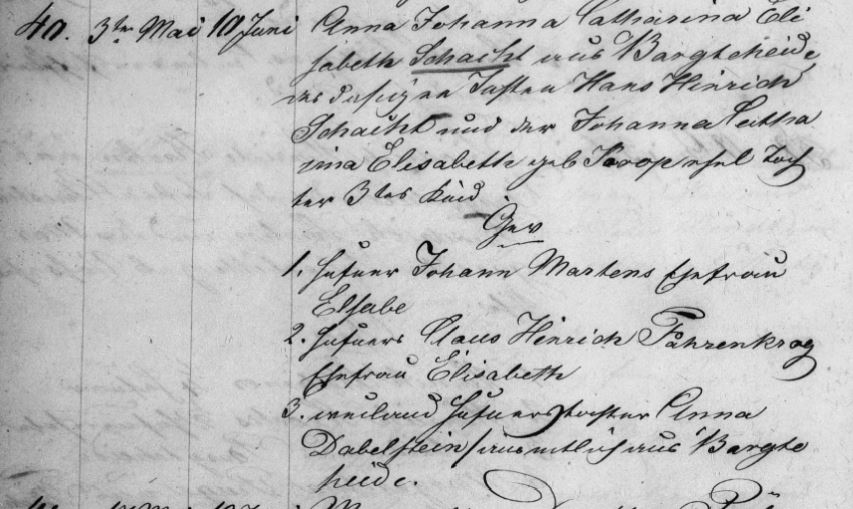 40. 3ten Mai 10 Juni Anna Johanna Catharina Eli
sabeth Schacht aus Bargteheide,
des dasigen Insten Hans Hinrich
Schacht und der Johanna Catha
rina Elisabeth geb ehel Toch
ter 3tes Kind
Gev
1. Hufner Johann Martens Ehefrau
Elsabe
2. Hufners Claus Hinrich Fahrenkrog
Ehefrau Elisabeth
3. weiland Hufners Tochter Anna
Dabelstein, sämmtlich aus Bargte
heide.